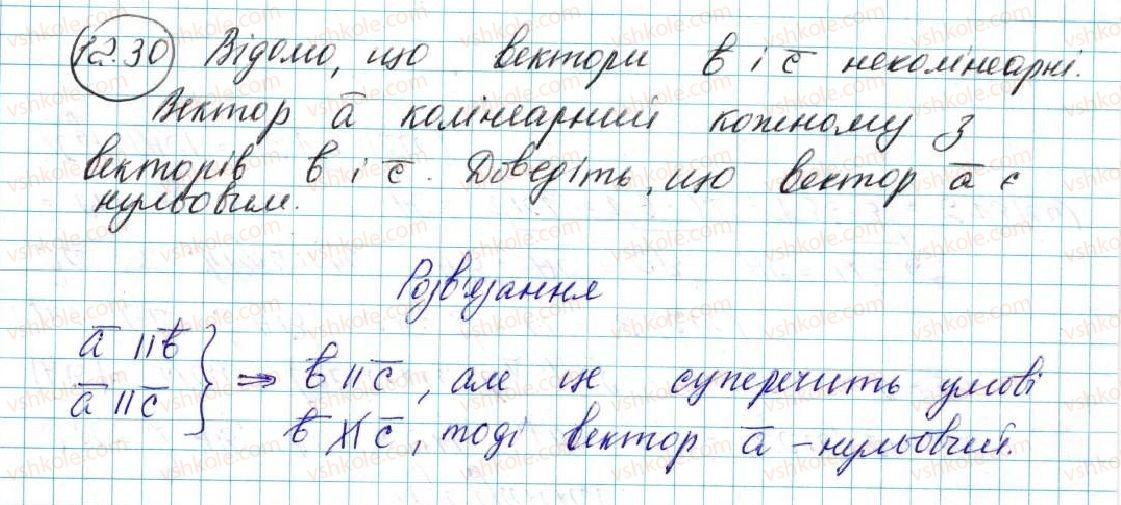 12.30 Відомо, що вектори b̅ і c̅ неколінеарні.
Вектор a̅ колінеарний кожному з
векторів b̅ і c̅. Доведіть, що вектор a̅ є
нульовим.
Розв'язання
a̅ || b̅
a̅ || c̅
} ⇒ b̅ || c̅, але це суперечить умові
b̅ ∦ c̅, тоді вектор a̅ – нульовий.
vshkole.com